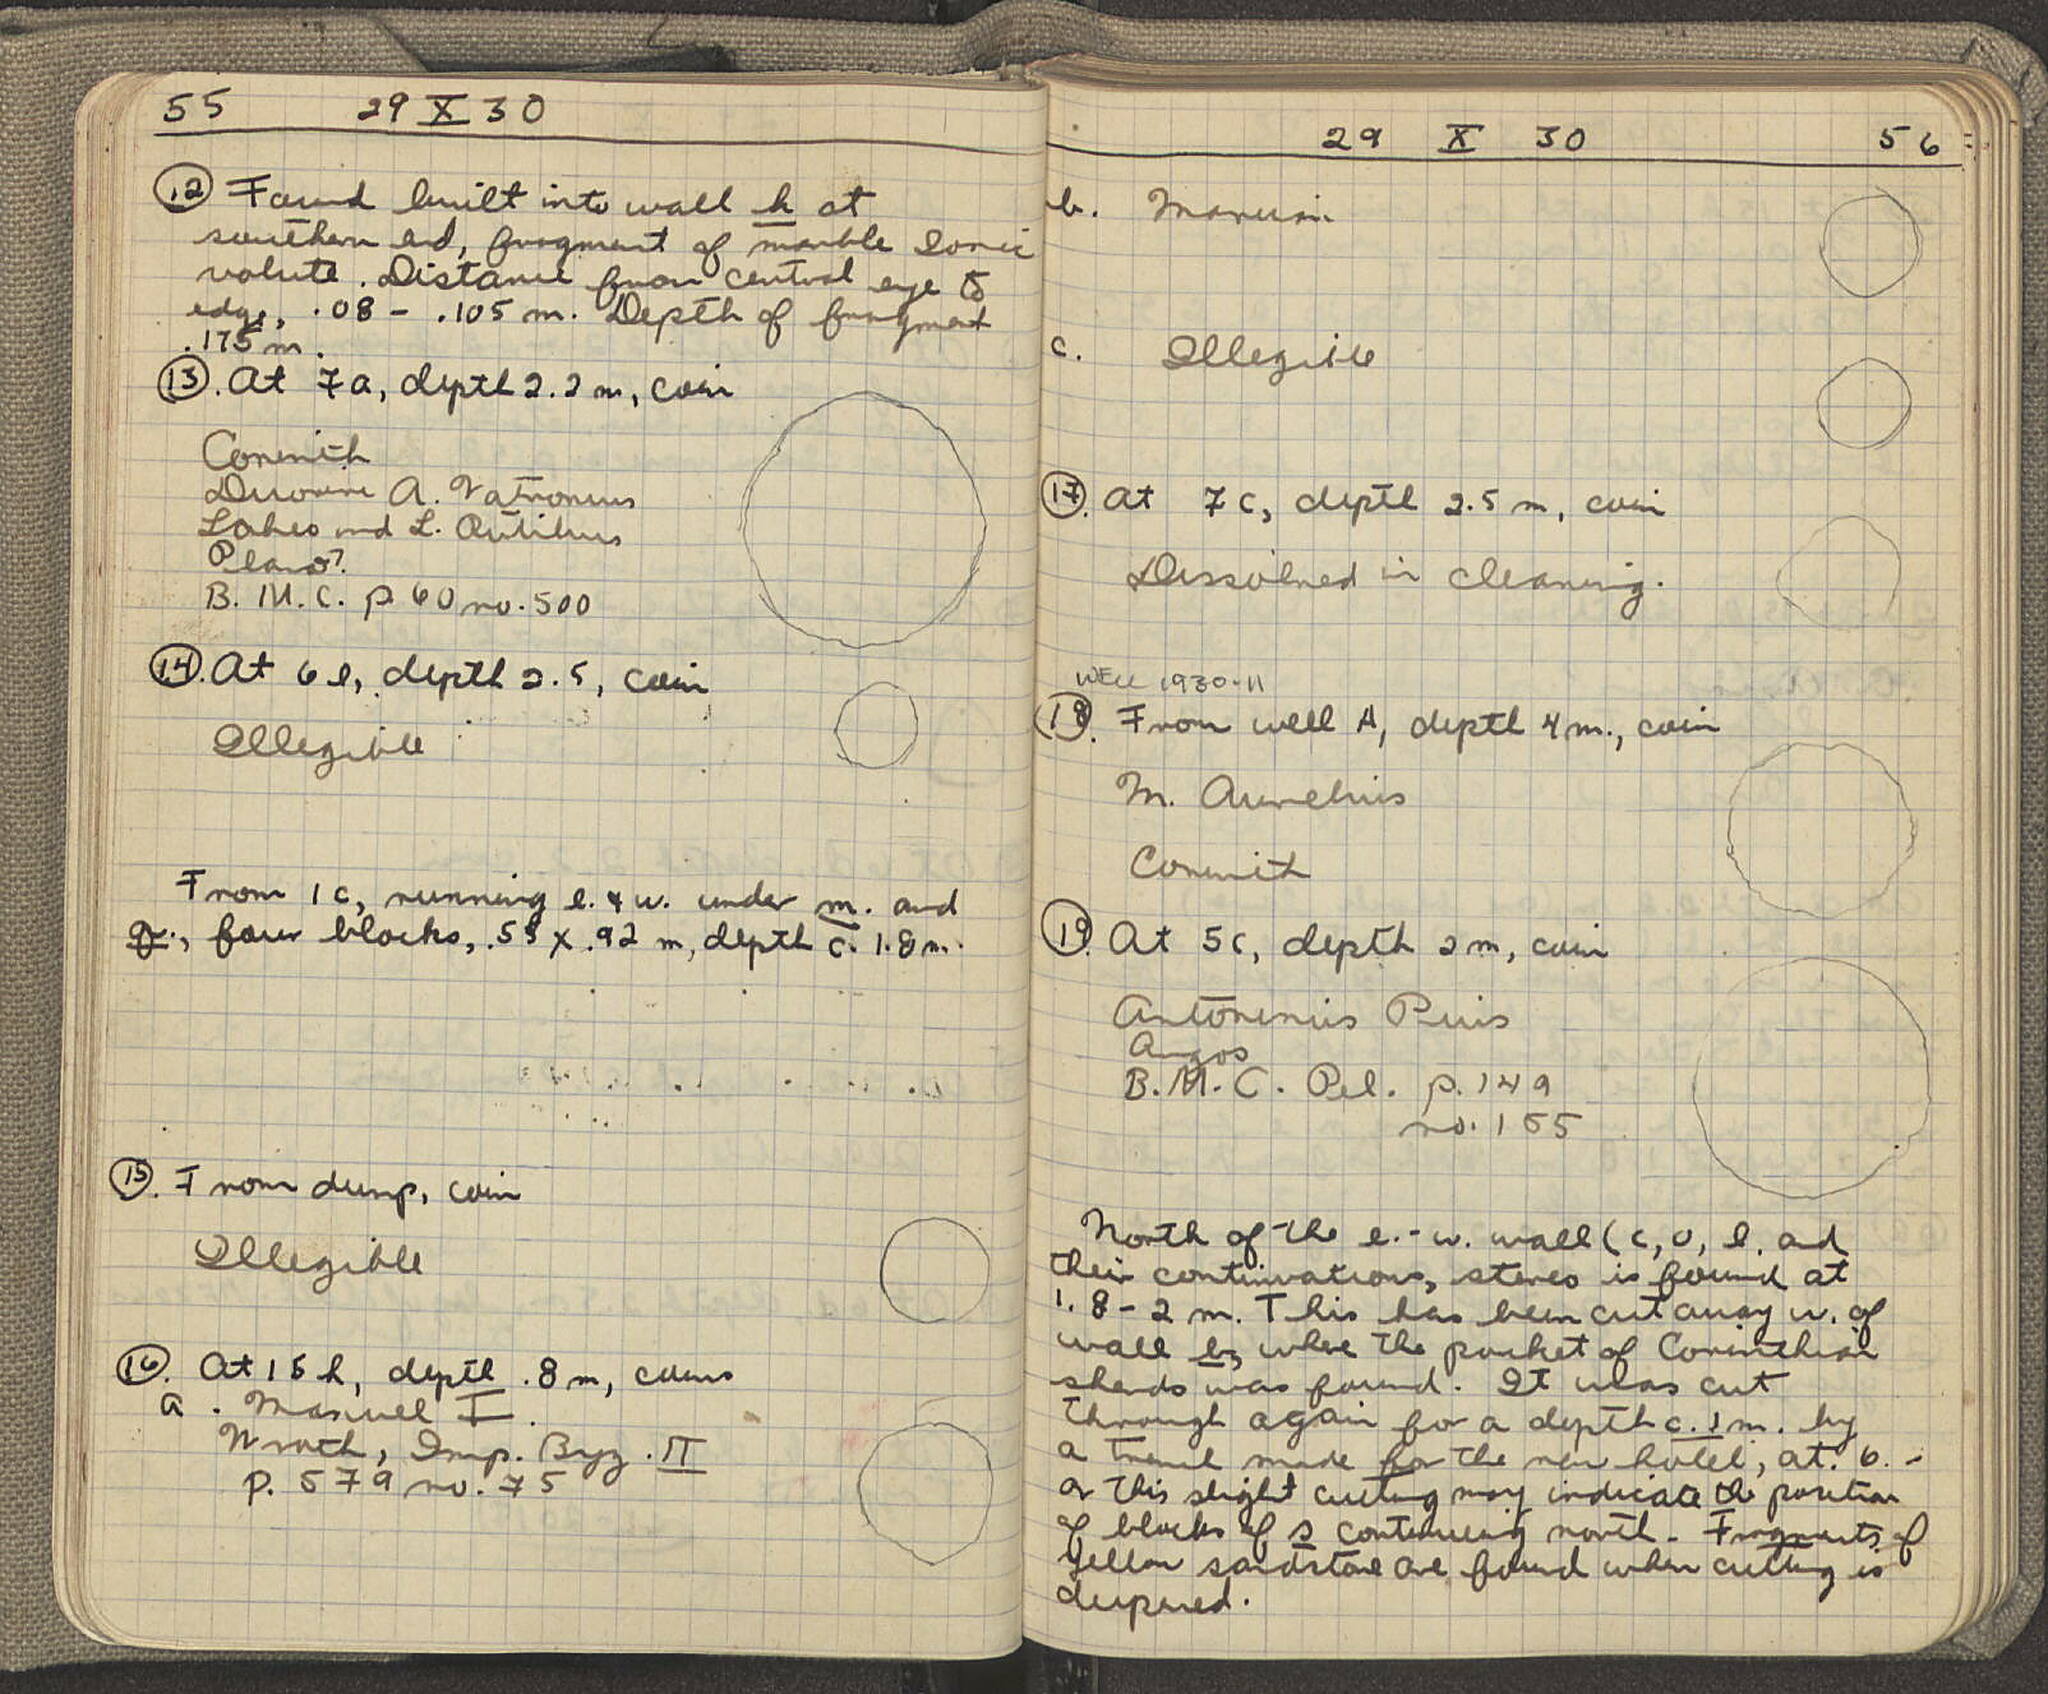 55 29 X 30
(12) Found built into wall h at
southern end, fragment of marble Ionic
volute. Distance from central eye to
edge, .08 - .105 m. Depth of fragment
.175 m.
(13). At 7a, depth 2.2 m, coin
Corinth
Duoviri A. Vatronius
Labeo and L. Rutilius
Plano?.
B. M. C. p 60 no. 500
(14). At 6 l, depth 2.5, coin
Illegible
From 1 c, running e. & w. under m. and
four blocks, .55 x .92 m, depth c. 1.8 m.
(15). From dump, coin
Illegible
(16). At 15 h, depth .8 m, coins
a. Manuel I.
Wroth, Imp. Byz. II
p. 579 no. 75
29 X 30 56
b. Manuel
c. Illegible
(17). At 7 c, depth 2.5 m, coin
Dissolved in cleaning.
WELL 1930-11
(18). From well A, depth 4 m., coin
M. Aurelius
Corinth
(19). At 5c, depth 2 m, coin
Antoninus Pius
Argos
B. M. C. Pel. p. 149
no. 155
North of the e.-w. wall (c, o, l. and
their continuations, stereo is found at
1.8 - 2 m. This has been cut away w. of
wall b, where the pocket of Corinthian
sherds was found. It was cut
through again for a depth c. 1 m. by
a trench made for the new hotel; at 6. -
a this slight cutting may indicate the position
of blocks of s continuing north - Fragments of
yellow sandstone are found when cutting is
deepened.